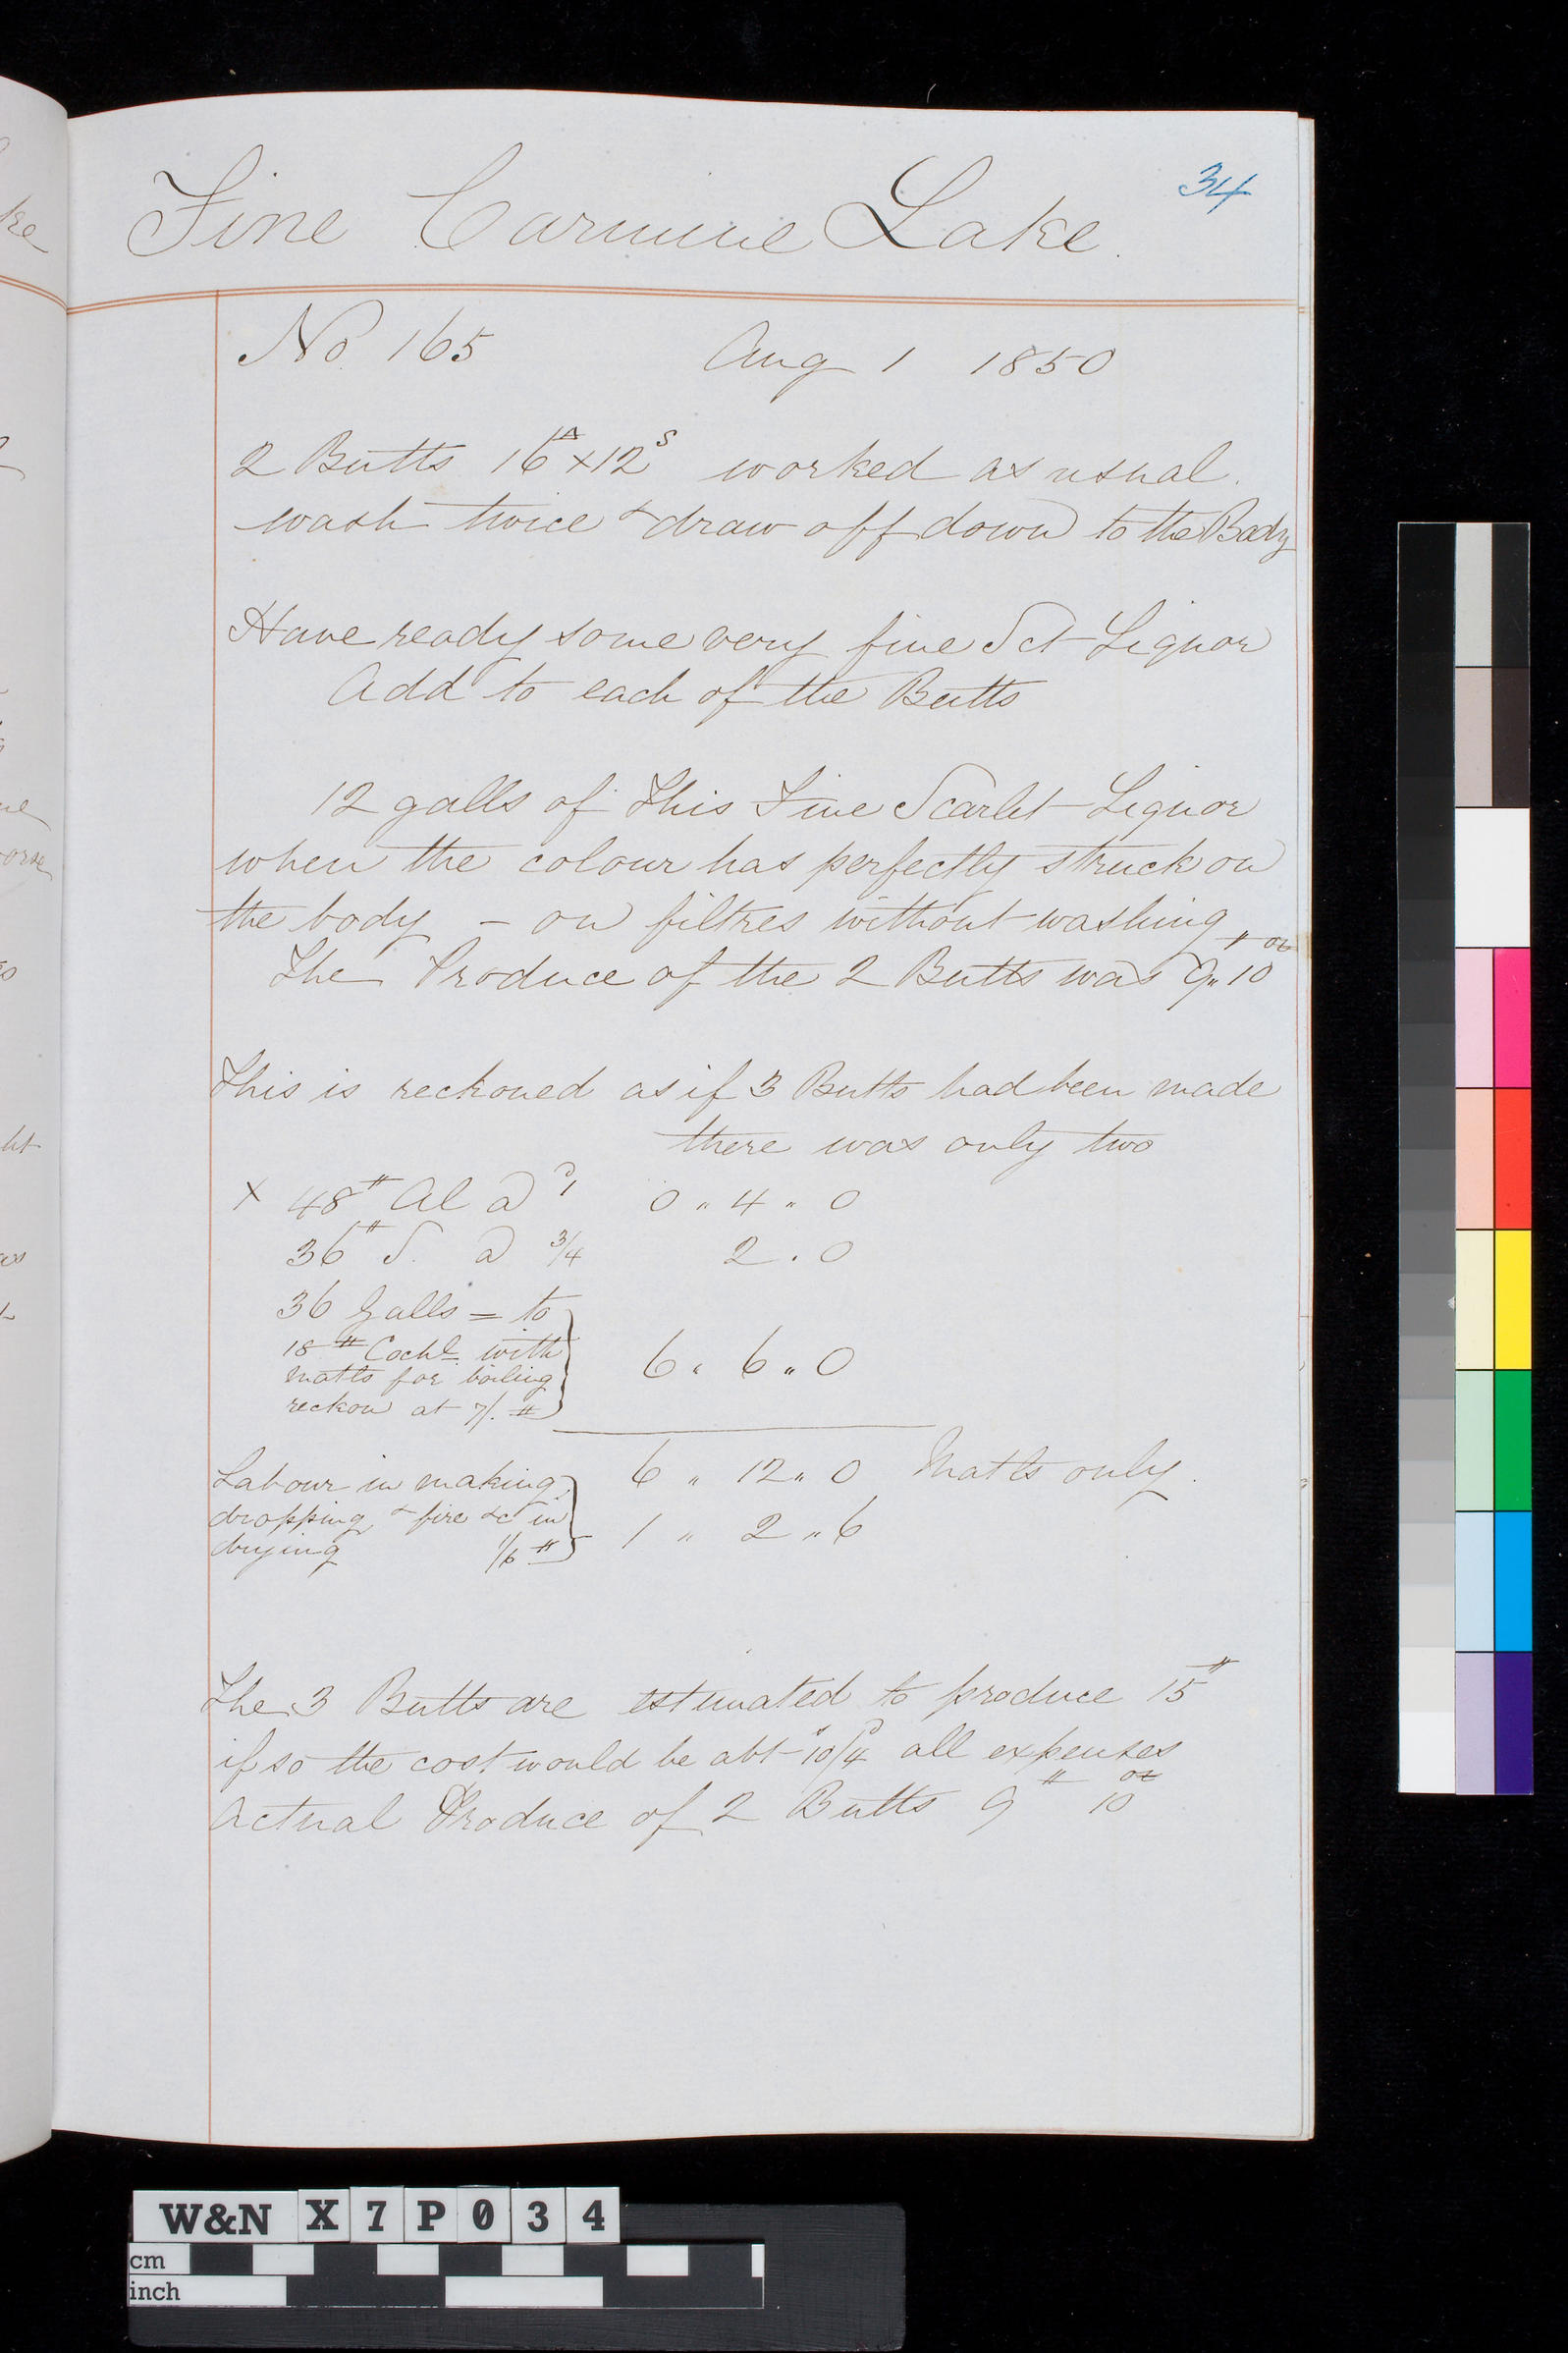 34
Fine Carmine Lake.
No. 165 Aug 1 1850
2 Butts 16A x 12S worked as usual.
wash twice & draw off down to the Body
Have ready some very fine Sct Liquor
Add to each of the Butts
12 galls of This Fine Scarlet Liquor
when the colour has perfectly struck on
the body - on filtres without washing
The Produce of the 2 Butts was 9# „ 10 oz
This is reckoned as if 3 Butts had been made
there was only two
x 48# Al @ 1d 0 „ 4 „ 0
36# S. @ 3/4 2 . 0
36 Galls = to
18# Cochl with
matls for boiling
reckon at 7/. #
6 „ 6 „ 0
6 „ 12 „ 0 Matls only.
Labour in making
dropping & fire &c in
drying 1/6 #
1 „ 2 „ 6
The 3 Butts are estimated to produce 15#
if so the cost would be abt 10s/4d all expenses
Actual Produce of 2 Butts 9# 10 oz
ke
orse
W&N X7P034
cm
inch